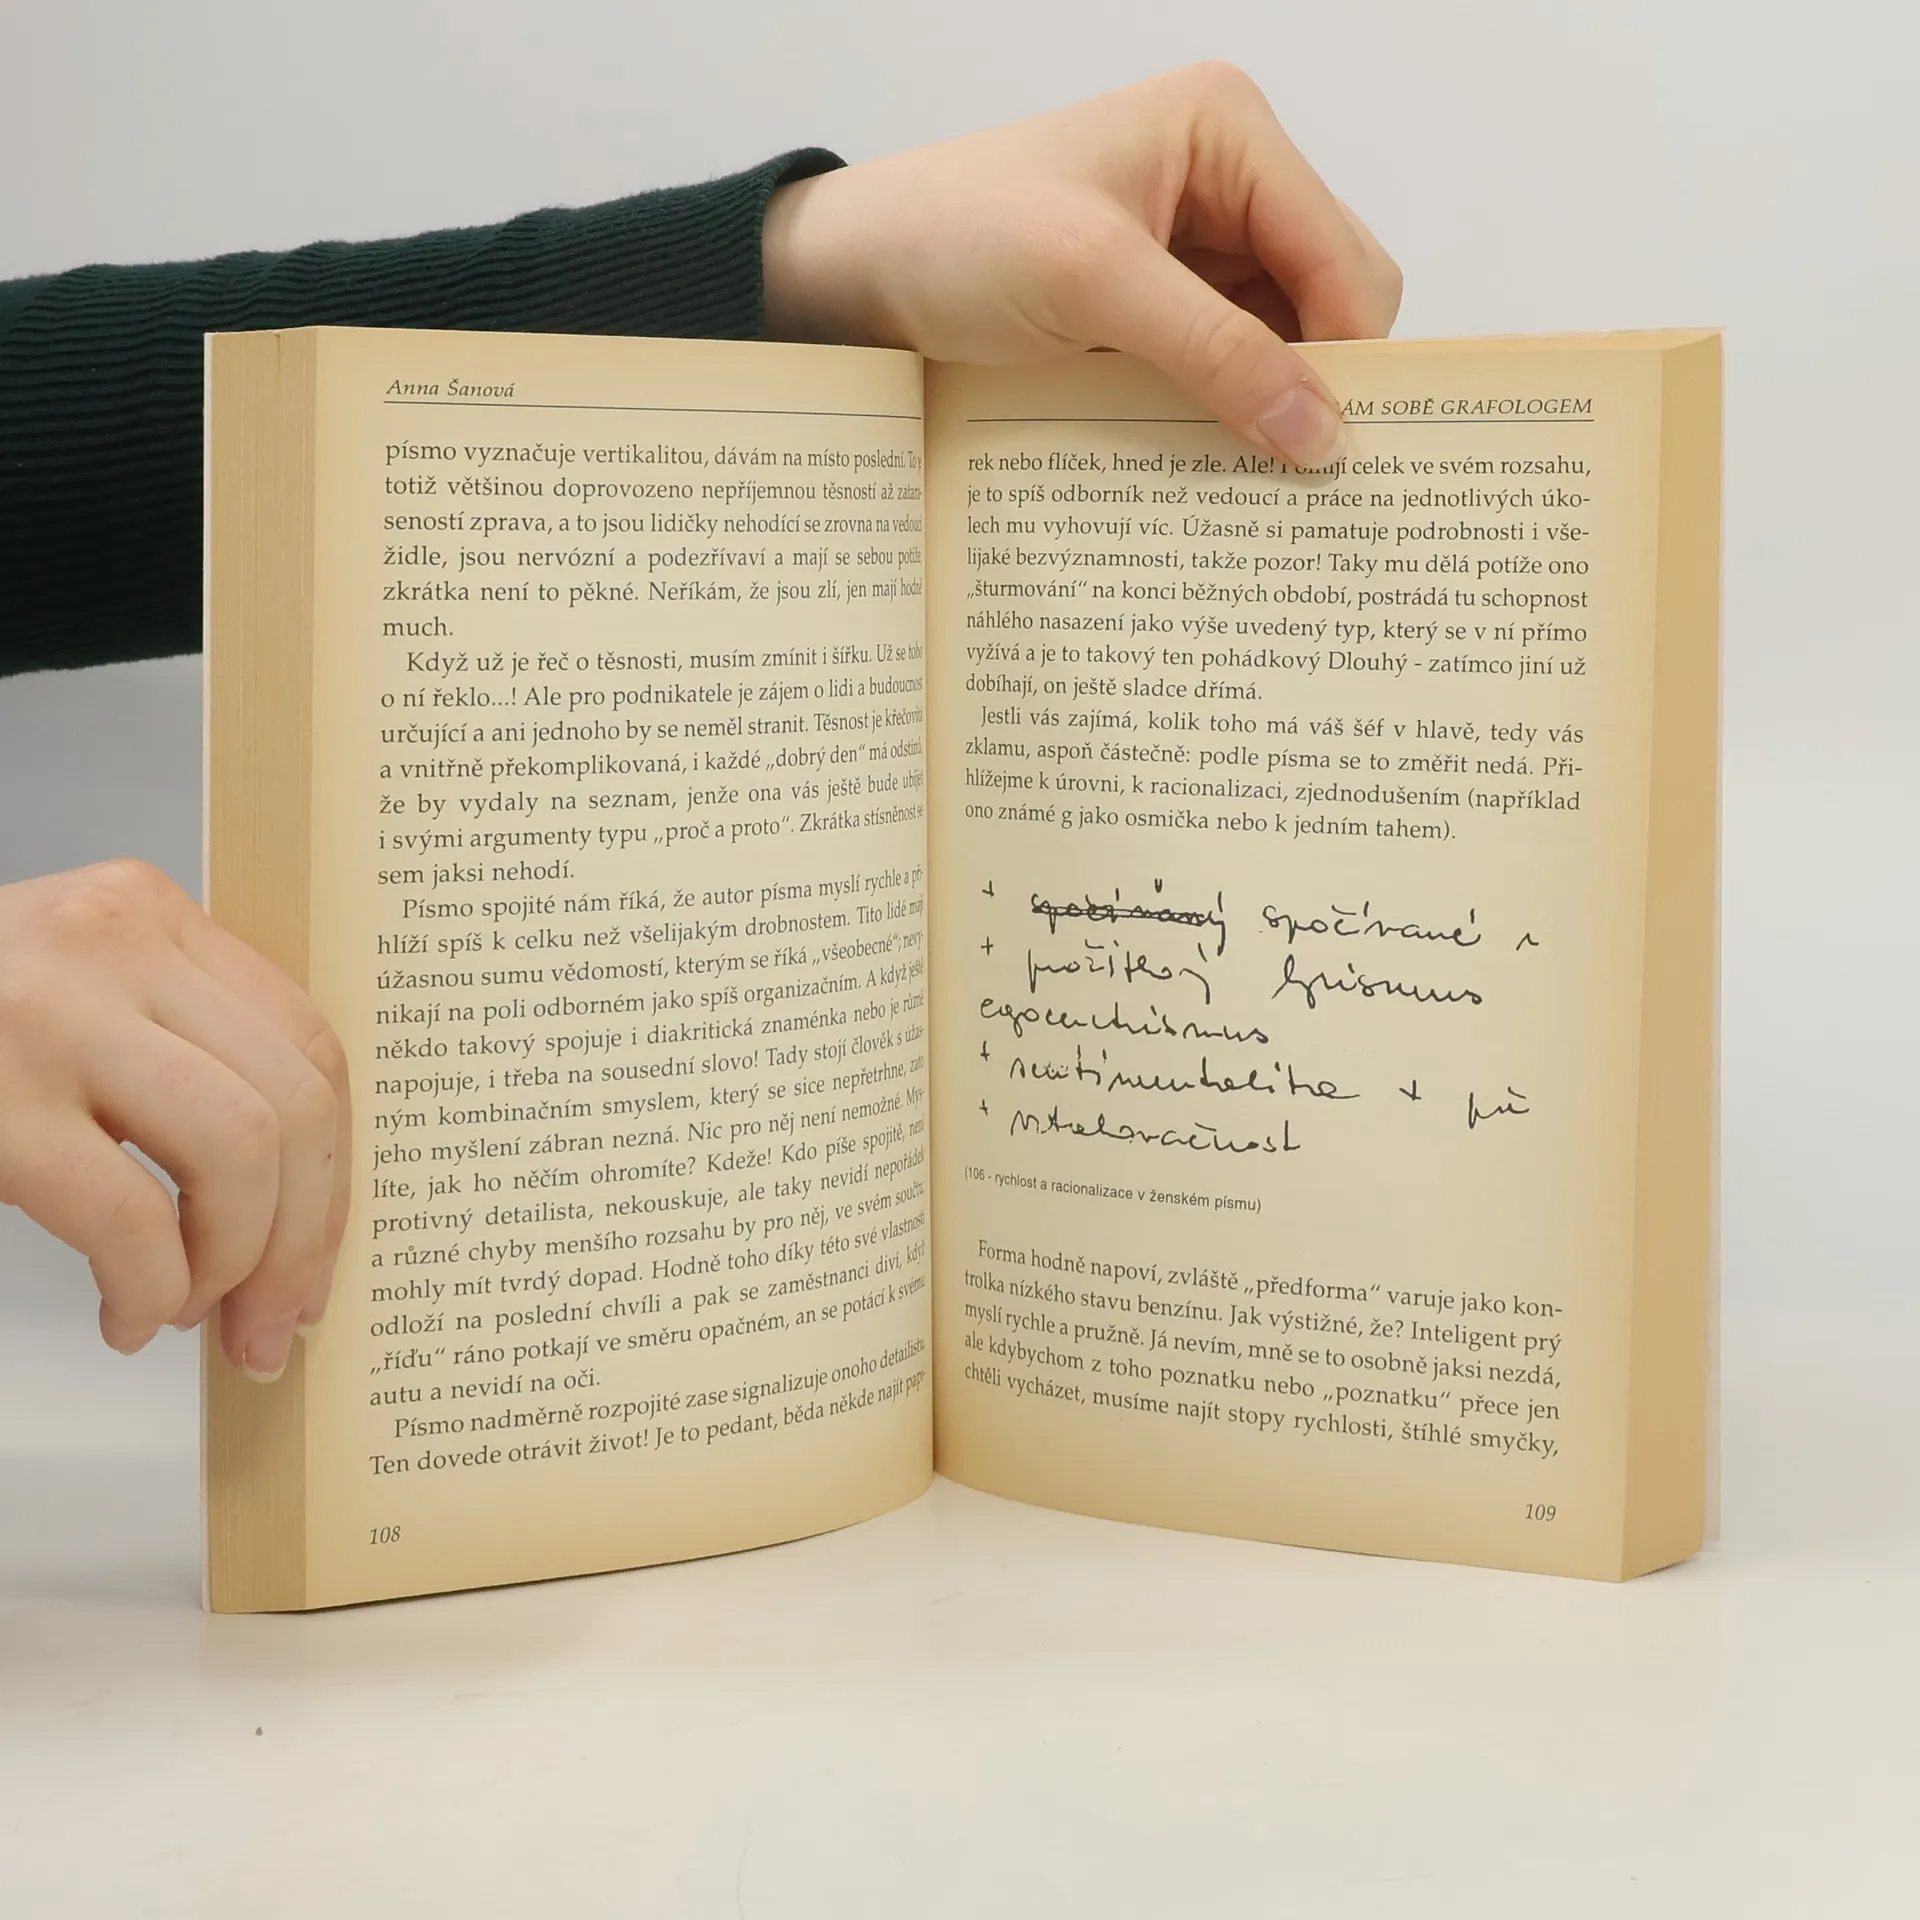 Anna Šanová
písmo vyznačuje vertikalitou, dávám na místo poslední. To je
totiž většinou doprovozeno nepříjemnou těsností až zatar-
seností zprava, a to jsou lidičky nehodící se zrovna na vedoucí
židle, jsou nervózní a podezřívaví a mají se sebou potíže,
zkrátka není to pěkné. Neříkám, že jsou zlí, jen mají hodně
much.
Když už je řeč o těsnosti, musím zmínit i šířku. Už se toho
o ní řeklo...! Ale pro podnikatele je zájem o lidi a budoucnost
určující a ani jednoho by se neměl stranit. Těsnost je křečovitá
a vnitřně překomplikovaná, i každé „dobrý den“ má odstínů,
že by vydaly na seznam, jenže ona vás ještě bude ubíjet
i svými argumenty typu „proč a proto“. Zkrátka stísněnost se
sem jaksi nehodí.
Písmo spojité nám říká, že autor písma myslí rychle a při-
hlíží spíš k celku než všelijakým drobnostem. Tito lidé mají
úžasnou sumu vědomostí, kterým se říká „všeobecné“; nevy-
nikají na poli odborném jako spíš organizačním. A když ještě
někdo takový spojuje i diakritická znaménka nebo je různě
napojuje, i třeba na sousední slovo! Tady stojí člověk s úžas-
ným kombinačním smyslem, který se sice nepřetrhne, zato
jeho myšlení zábran nezná. Nic pro něj není nemožné. Mys-
líte, jak ho něčím ohromíte? Kdeže! Kdo píše spojitě, není
protivný detailista, nekouskuje, ale taky nevidí nepořádek
a různé chyby menšího rozsahu by pro něj, ve svém součtu,
mohly mít tvrdý dopad. Hodně toho díky této své vlastnosti
odloží na poslední chvíli a pak se zaměstnanci diví, když
„říďu“ ráno potkají ve směru opačném, an se potácí k svému
autu a nevidí na oči.
Písmo nadměrně rozpojité zase signalizuje onoho detailistu.
Ten dovede otrávit život! Je to pedant, běda někde najít papí-
108
SÁM SOBĚ GRAFOLOGEM
rek nebo flíček, hned je zle. Ale! celek ve svém rozsahu,
je to spíš odborník než vedoucí a práce na jednotlivých úko-
lech mu vyhovují víc. Úžasně si pamatuje podrobnosti i vše-
lijaké bezvýznamnosti, takže pozor! Taky mu dělá potíže ono
„šturmování“ na konci běžných období, postrádá tu schopnost
náhlého nasazení jako výše uvedený typ, který se v ní přímo
vyžívá a je to takový ten pohádkový Dlouhý - zatímco jiní už
dobíhají, on ještě sladce dřímá.
Jestli vás zajímá, kolik toho má váš šéf v hlavě, tedy vás
zklamu, aspoň částečně: podle písma se to změřit nedá. Při-
hlížejme k úrovni, k racionalizaci, zjednodušením (například
ono známé g jako osmička nebo k jedním tahem).
+ spočívané
+ požitkový
egocentrismus
+ sentimentalita +
+
(106 - rychlost a racionalizace v ženském písmu)
Forma hodně napoví, zvláště „předforma“ varuje jako kon-
trolka nízkého stavu benzínu. Jak výstižné, že? Inteligent prý
myslí rychle a pružně. Já nevím, mně se to osobně jaksi nezdá,
ale kdybychom z toho poznatku nebo „poznatku“ přece jen
chtěli vycházet, musíme najít stopy rychlosti, štíhlé smyčky,
109